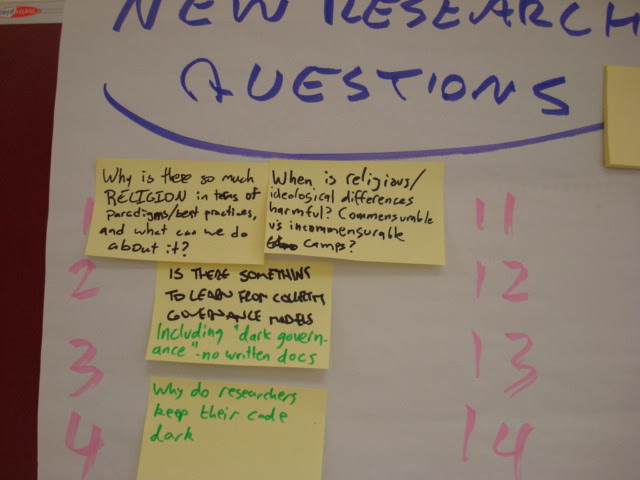 NEW RESEARCH
QUESTIONS
Why is there so much
RELIGION in terms of
paradigms/best practices,
and what can we do
about it?
When is religious/
ideological differences
harmful? Commensumble
v's incommensurable
camps?
1
11
2
IS THERE SOMETHING
TO LEARN FROM
GOVERNANCE MODELS
Including "dark govern-
ance" - no written docs
12
3
13
Why do researchers
keep their code
dark
4
14